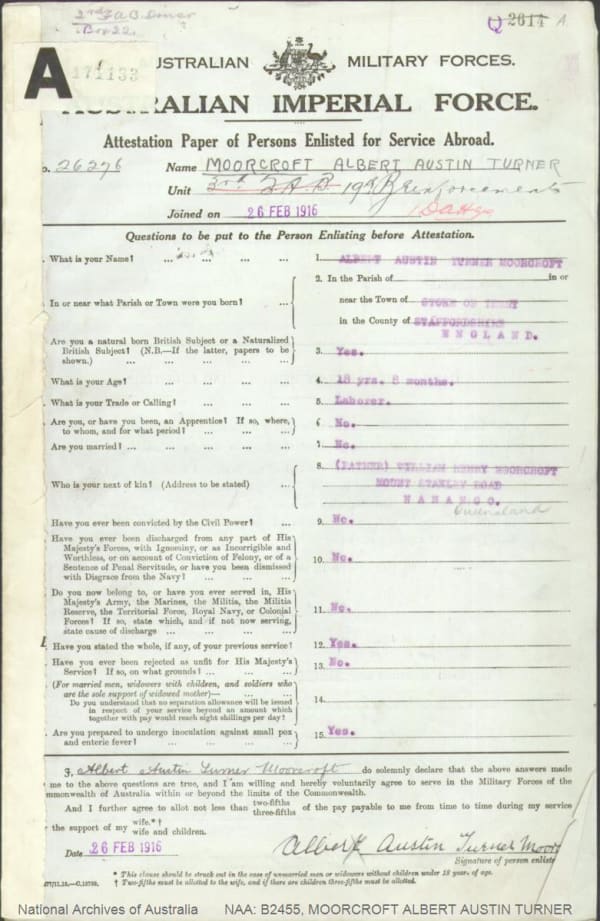 2nd F A B
Box 22
Q 2614 A.
A
171133
AUSTRALIAN MILITARY FORCES.
AUSTRALIAN IMPERIAL FORCE.
Attestation Paper of Persons Enlisted for Service Abroad.
o. 26276 Name MOORCROFT ALBERT AUSTIN TURNER
Unit 3rd F A B 19th Reinforcements
Joined on 26 FEB 1916
Questions to be put to the Person Enlisting before Attestation.
What is your Name? ... ... ... ... 1. ALBERT AUSTIN TURNER MOORCROFT
2. In the Parish of in or
In or near what Parish or Town were you born? ... near the Town of STOKE ON TRENT
in the County of STAFFORDSHIRE
ENGLAND.
Are you a natural born British Subject or a Naturalized
British Subject? (N.B.—If the latter, papers to be
shown.) ... ... ... ... 3. Yes.
What is your Age? ... ... ... ... 4. 18 yrs. 8 months.
What is your Trade or Calling? ... ... ... 5. Laborer.
Are you, or have you been, an Apprentice? If so, where,
to whom, and for what period? ... ... 6 No.
Are you married? ... ... ... ... 7. No.
8. (FATHER) WILLIAM HENRY MOORCROFT
Who is your next of kin? (Address to be stated) ... MOUNT STANLEY ROAD
NANANGO.
Queensland
Have you ever been convicted by the Civil Power? ... 9. No.
Have you ever been discharged from any part of His
Majesty's Forces, with Ignominy, or as Incorrigible and
Worthless, or on account of Conviction of Felony, or of a
Sentence of Penal Servitude, or have you been dismissed
with Disgrace from the Navy? ... ... ... 10. No.
Do you now belong to, or have you ever served in, His
Majesty's Army, the Marines, the Militia, the Militia
Reserve, the Territorial Force, Royal Navy, or Colonial
Forces? If so, state which, and if not now serving,
state cause of discharge ... ... ... ... 11. No.
Have you stated the whole, if any, of your previous service? 12. Yes.
Have you ever been rejected as unfit for His Majesty's
Service? If so, on what grounds? ... ... 13. No.
(For married men, widowers with children, and soldiers who
are the sole support of widowed mother)—
Do you understand that no separation allowance will be issued
in respect of your service beyond an amount which
together with pay would reach eight shillings per day? 14.
Are you prepared to undergo inoculation against small pox
and enteric fever? ... ... ... ... 15. Yes.
I, Albert Austin Turner Moorcroft do solemnly declare that the above answers made
me to the above questions are true, and I am willing and hereby voluntarily agree to serve in the Military Forces of the
mmonwealth of Australia within or beyond the limits of the Commonwealth.
And I further agree to allot not less than two-fifths three-fifths of the pay payable to me from time to time during my service
the support of my wife.*† wife and children.
Date 26 FEB 1916 Albert Austin Turner Moor
Signature of person enliste
* This clause should be struck out in the case of unmarried men or widowers without children under 18 years of age.
† Two-fifths must be allotted to the wife, and if there are children three-fifths must be allotted.
National Archives of Australia NAA: B2455, MOORCROFT ALBERT AUSTIN TURNER